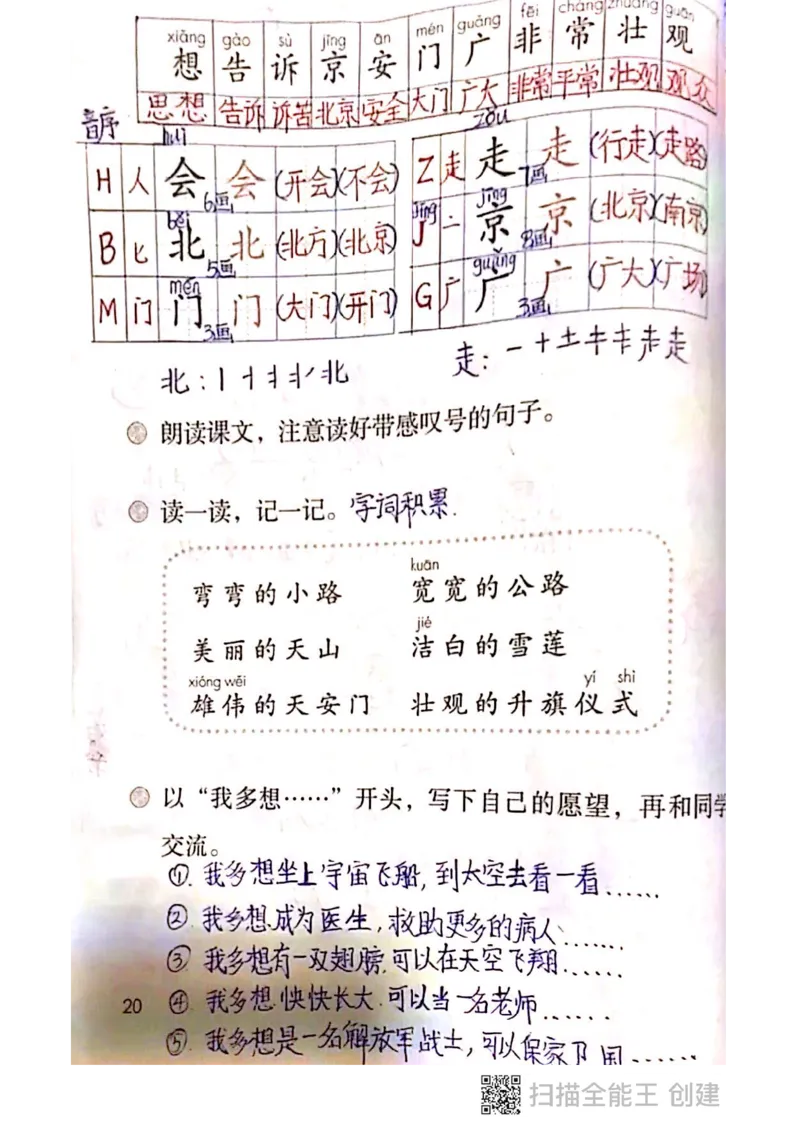 xiǎng gào sù jīng ān mén guǎng fēi cháng zhuàng guān
想 告 诉 京 安 门 广 非 常 壮 观
思想 告诉 诉苦 北京 安全 大门 广大 非常 平常 壮观 观众
音序
huì zǒu
H 人 会 6画 会 (开会)(不会) Z 走 走 7画 走 (行走)(走路)
běi jīng
B 匕 北 5画 北 (北方)(北京) J 亠 京 8画 京 (北京)(南京)
mén guǎng
M 门 门 3画 门 (大门)(开门) G 广 广 3画 广 (广大)(广场)
朗读课文，注意读好带感叹号的句子。
读一读，记一记。字词积累.
kuān
弯弯的小路 宽宽的公路
jié
美丽的天山 洁白的雪莲
xióng wěi yí shì
雄伟的天安门 壮观的升旗仪式
以“我多想……”开头，写下自己的愿望，再和同学
交流。
①. 我多想坐上宇宙飞船, 到太空去看一看......
② 我多想成为医生, 救助更多的病人......
③ 我多想有一双翅膀.可以在天空飞翔......
20 ④ 我多想快快长大.可以当一名老师......
⑤. 我多想是一名解放军战士, 可以保家卫国......
扫描全能王 创建